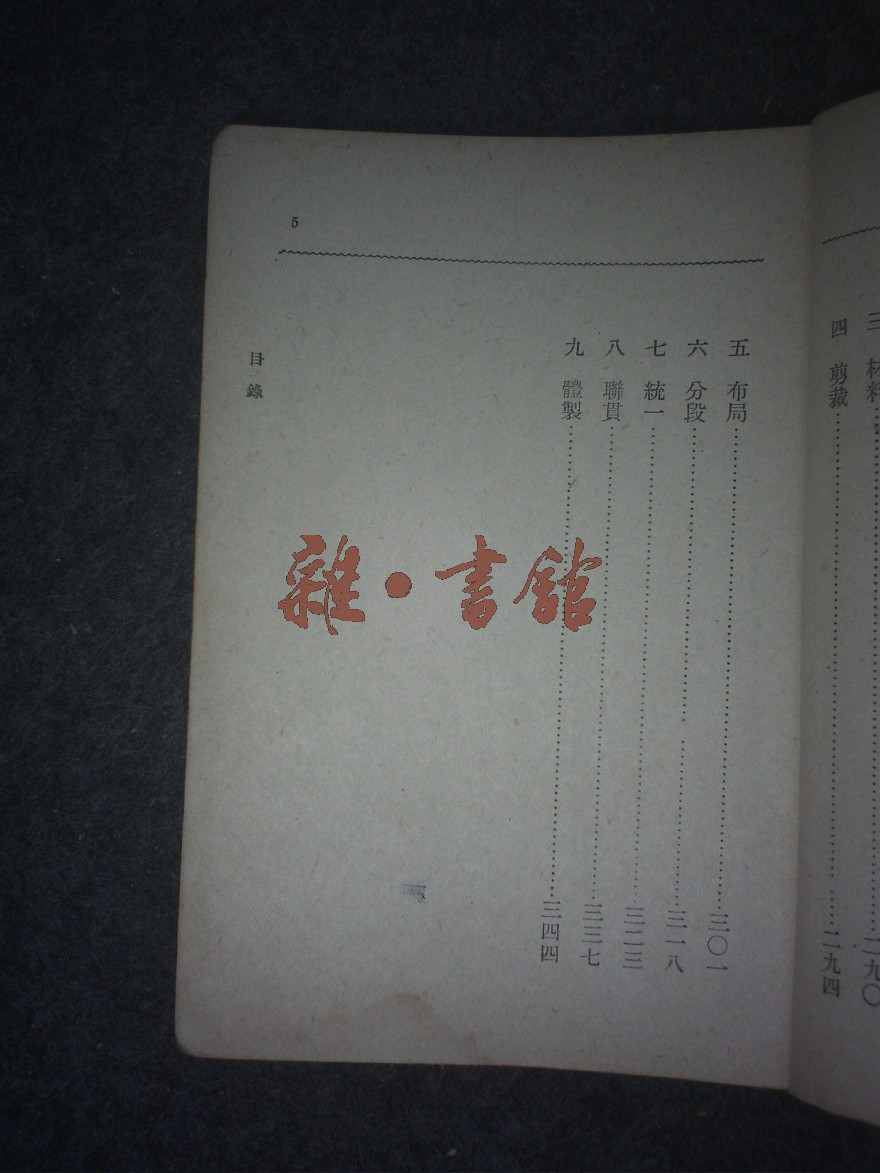 三 材料……二九〇
四 剪裁……二九四
5
五 布局……三〇一
六 分段……三一八
七 統一……三二三
八 聯貫……三三七
九 體製……三四四
目錄
雜·書館